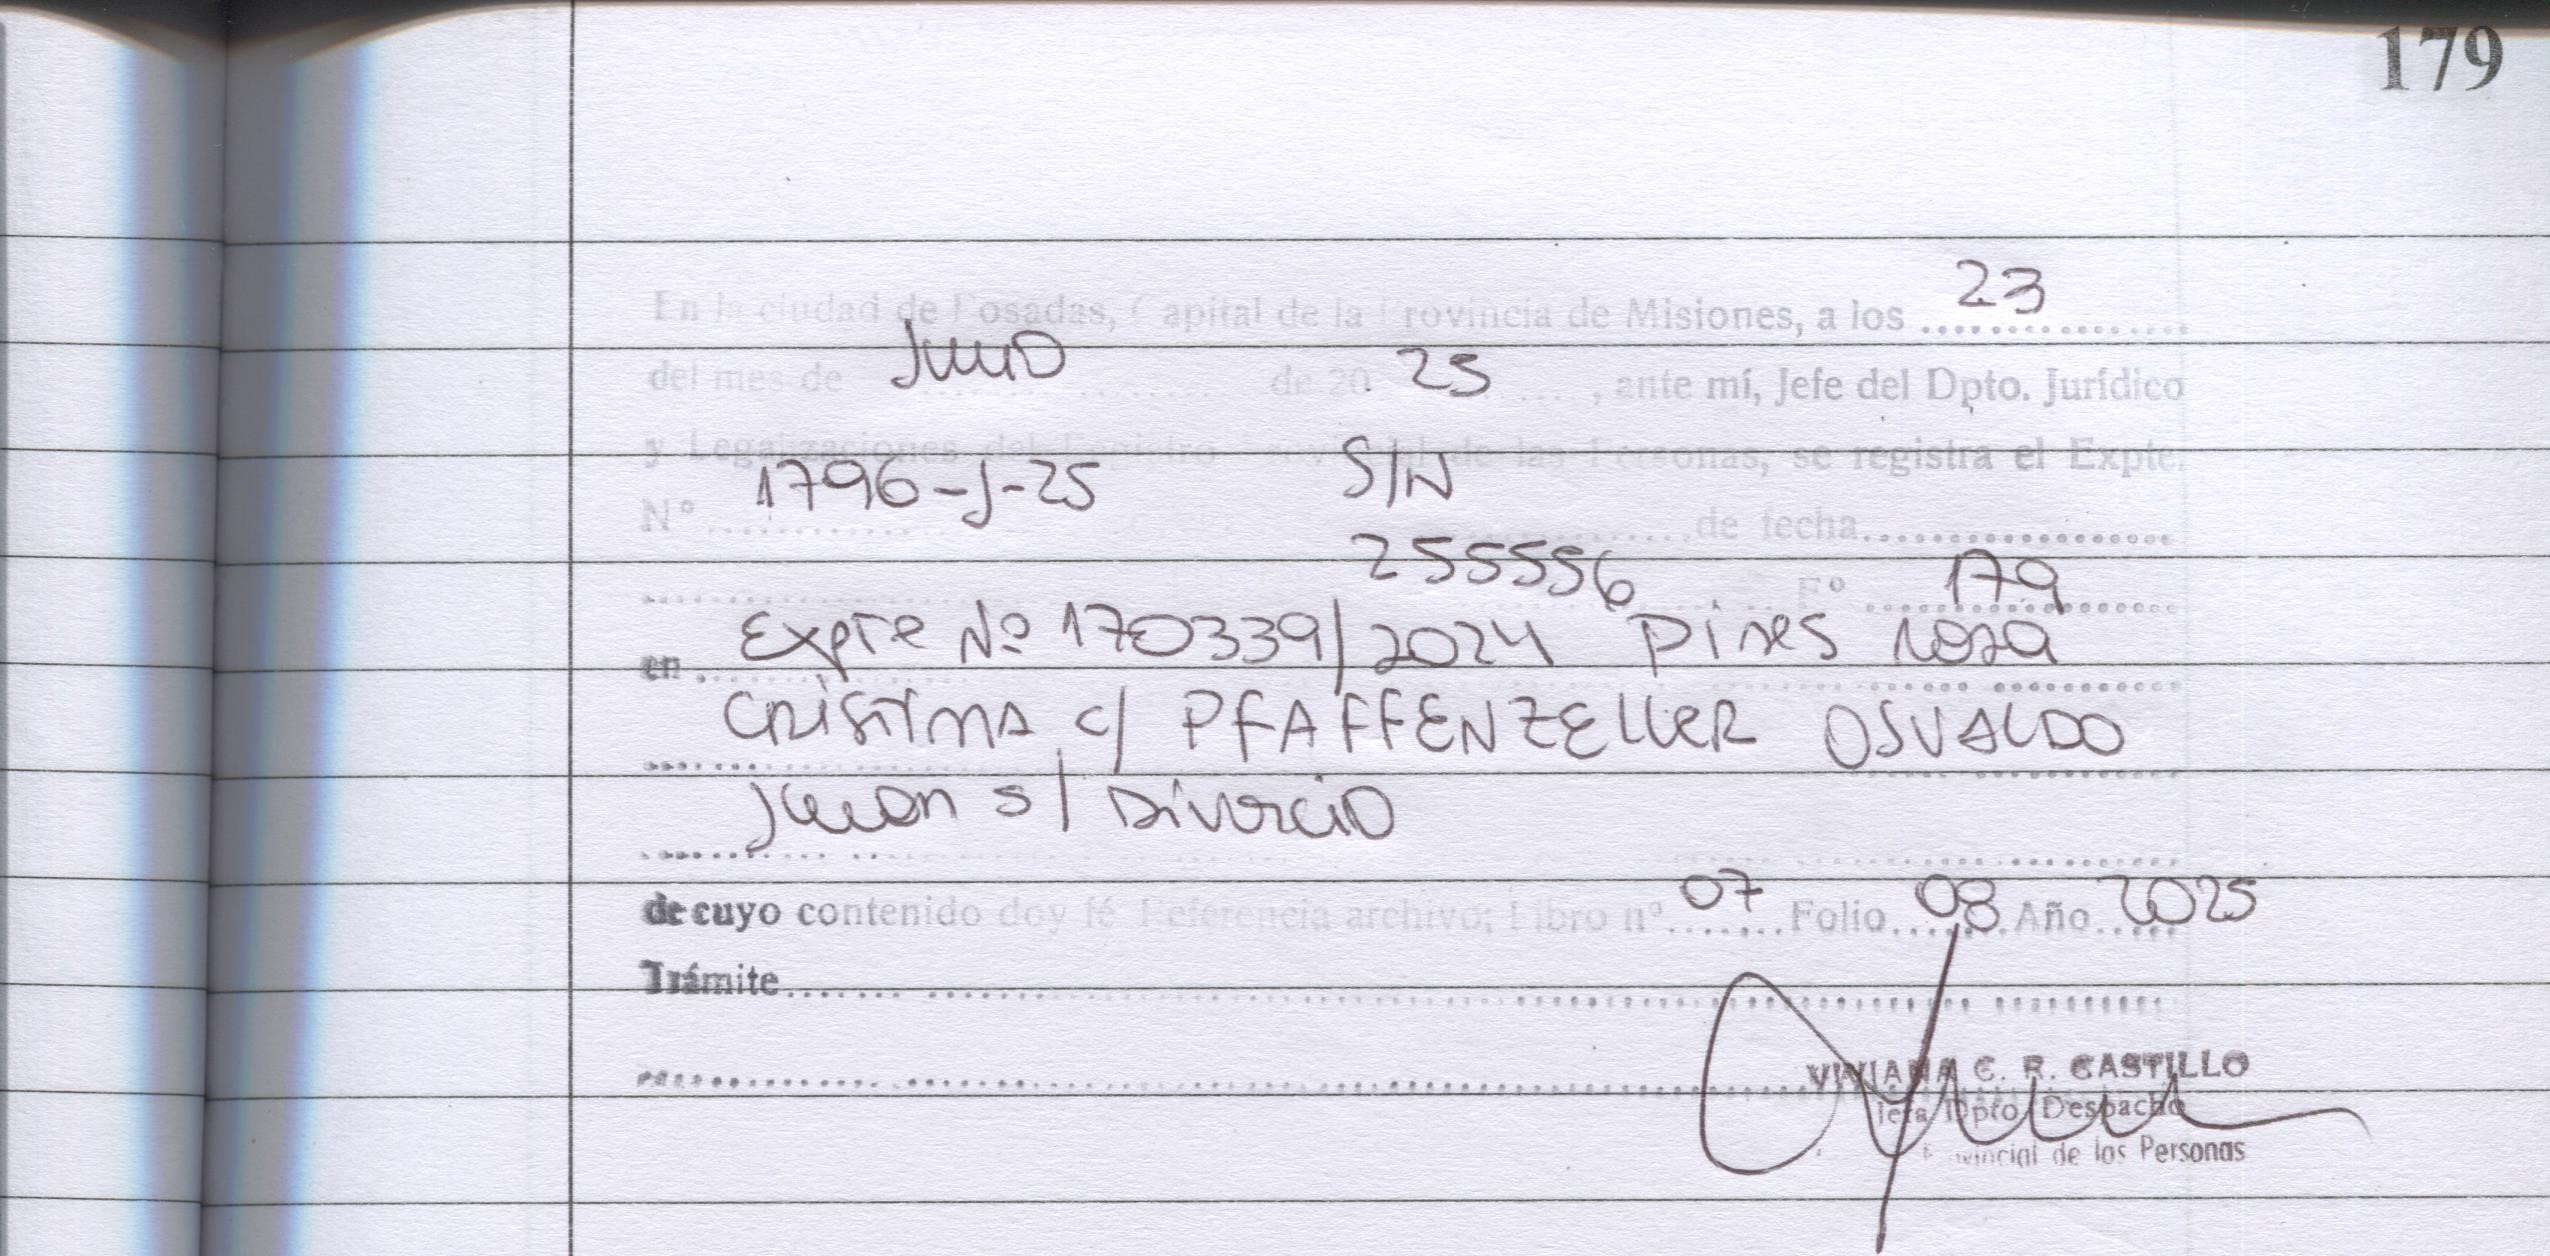 179
En la ciudad de Posadas, Capital de la Provincia de Misiones, a los 23
del mes de Julio de 20 25, ante mí, Jefe del Dpto. Jurídico
y Legalizaciones del Registro Provincial de las Personas, se registra el Expte.
Nº 1796-J-25 S/N de fecha
255556 Fº 179
en Expte Nº 170339/2024 Pires rosa
Cristina c/ PFAFFENZELLER OSVALDO
Juan s/ Divorcio
de cuyo contenido doy fé Referencia archivo; Libro nº 07 Folio 08 Año 2025
Trámite
VIVIANA C. R. CASTILLO
Jefa Dpto Despacho
Provincial de las Personas